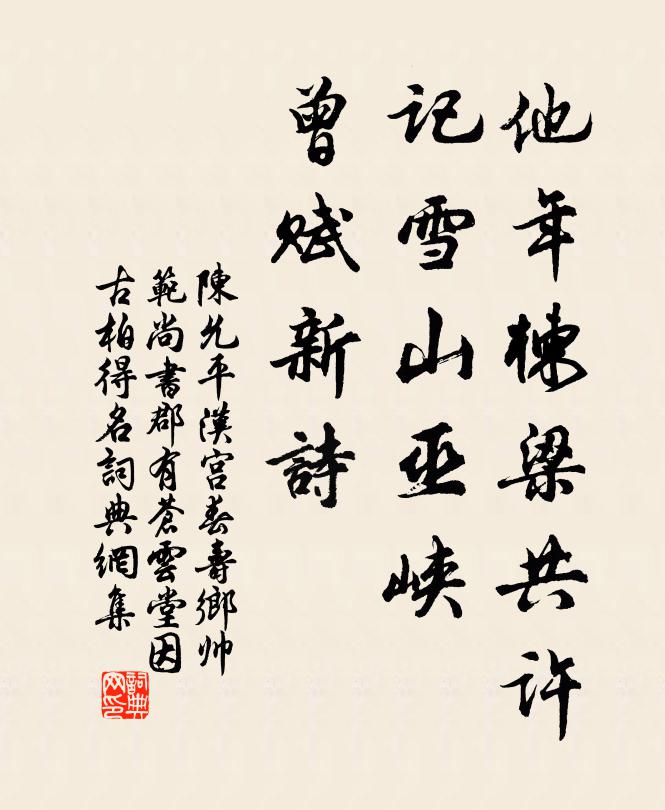 他年棟梁共許
記雪山巫峽
曾賦新詩
陳允平漢宮春壽鄉帅
範尚書郡有蒼雲堂因
古柏得名詞典網集
詞典
网印